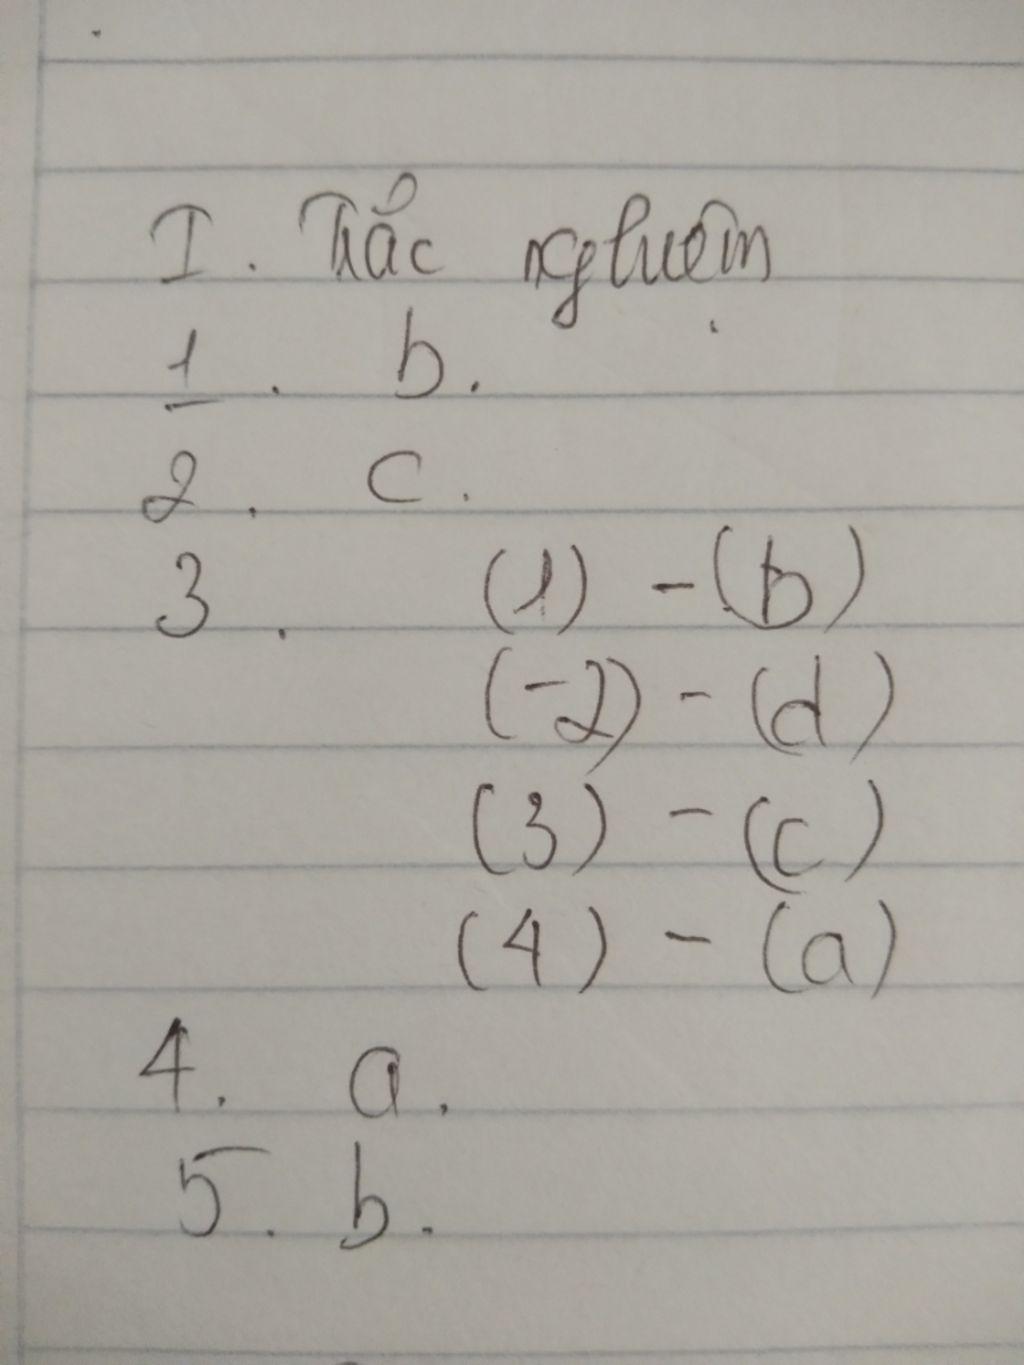 I. Trắc nghiệm
1. b.
2. c.
3. (1) - (b)
(-2) - (d)
(3) - (c)
(4) - (a)
4. a.
5. b.